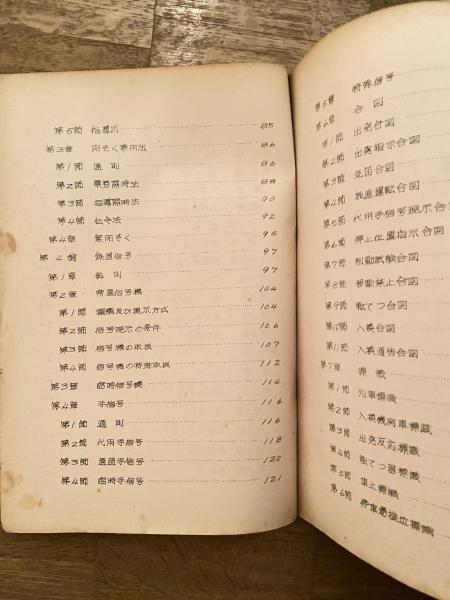 第5節 指導式 85
第3章 閉そく準用法 86
第1節 通則 86
第2節 票券隔時法 88
第3節 指導隔時法 90
第4節 伝令法 92
第4章 無閉そく 95
第4編 鉄道信号 97
第1章 総則 97
第2章 常置信号機 104
第1節 種類及び現示方式 104
第2節 信号現示の条件 106
第3節 信号機の取扱 107
第4節 信号機の特殊取扱 112
第3章 臨時信号機 114
第4章 手信号 116
第1節 通則 116
第2節 代用手信号 118
第3節 通過手信号 120
第4節 臨時手信号 121
第5章 特殊信号
第6章 合図
第1節 出発合図
第2節 出発指示合図
第3節 気笛合図
第4節 推進運転合図
第5節 代用手信号現示合図
第6節 停止位置指示合図
第7節 制動試験合図
第8節 移動禁止合図
第9節 転てつ合図
第10節 入換合図
第11節 入換通告合図
第7章 標識
第1節 列車標識
第2節 入換機関車標識
第3節 出発反応標識
第4節 転てつ器標識
第5節 車止標識
第6節 停車場接近標識